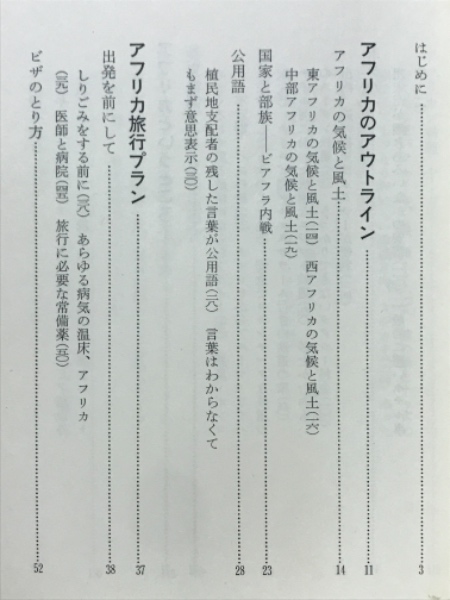 はじめに……3
アフリカのアウトライン……11
アフリカの気候と風土……14
東アフリカの気候と風土(一四) 西アフリカの気候と風土(一六)
中部アフリカの気候と風土(一九)
国家と部族――ビアフラ内戦……23
公用語……28
植民地支配者の残した言葉が公用語(二八) 言葉はわからなくて
もまず意思表示(三〇)
アフリカ旅行プラン……37
出発を前にして……38
しりごみをする前に(三八) あらゆる病気の温床、アフリカ
(三九) 医師と病院(四五) 旅行に必要な常備薬(五〇)
ビザのとり方……52